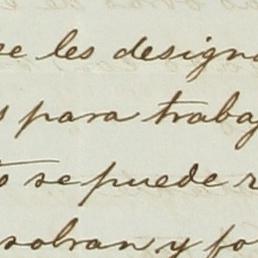 se les designa
s para traba
to se puede r
sobran y fo